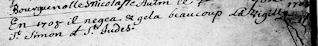 Bourguenolle Nicolasse Autm. le
En 1708 il negea & gela beaucoup La Vigille
St. Simon & St. Judes.